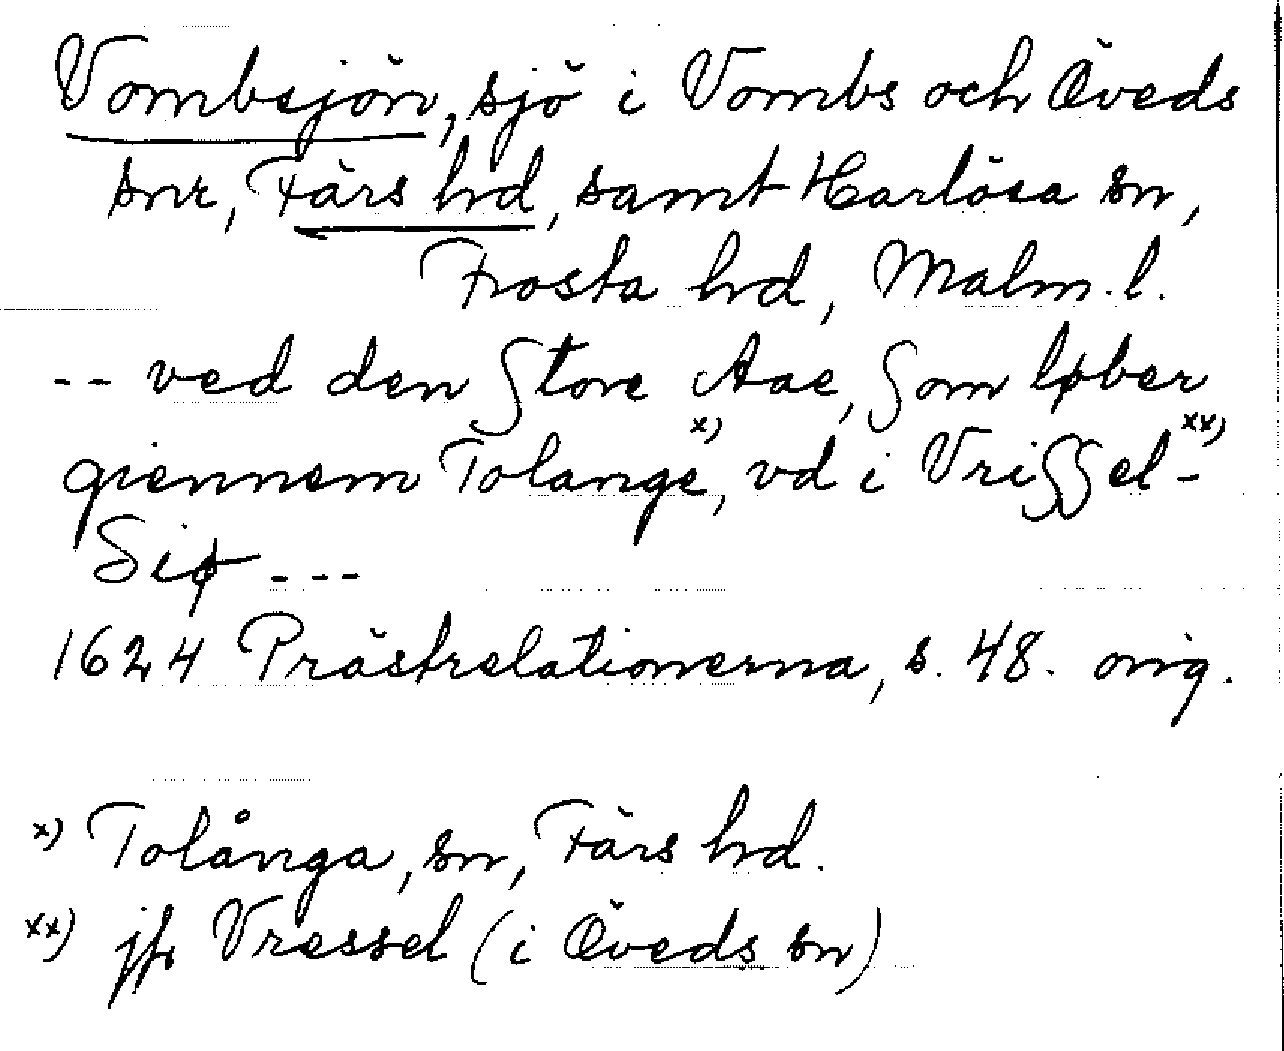 Vombsjön, sjö i Vombs och Öveds
snr, Färs hd, samt Harlösa sn,
Frosta hd, Malm. l.
-- ved den Store Aae, Som løber
giennem Tolange x), vd i Vrissel- xx)
Siø ---
1624 Prästrelationerna, s. 48. orig.
x) Tolånga, sn, Färs hd.
xx) jfr Vressel (i Öveds sn)